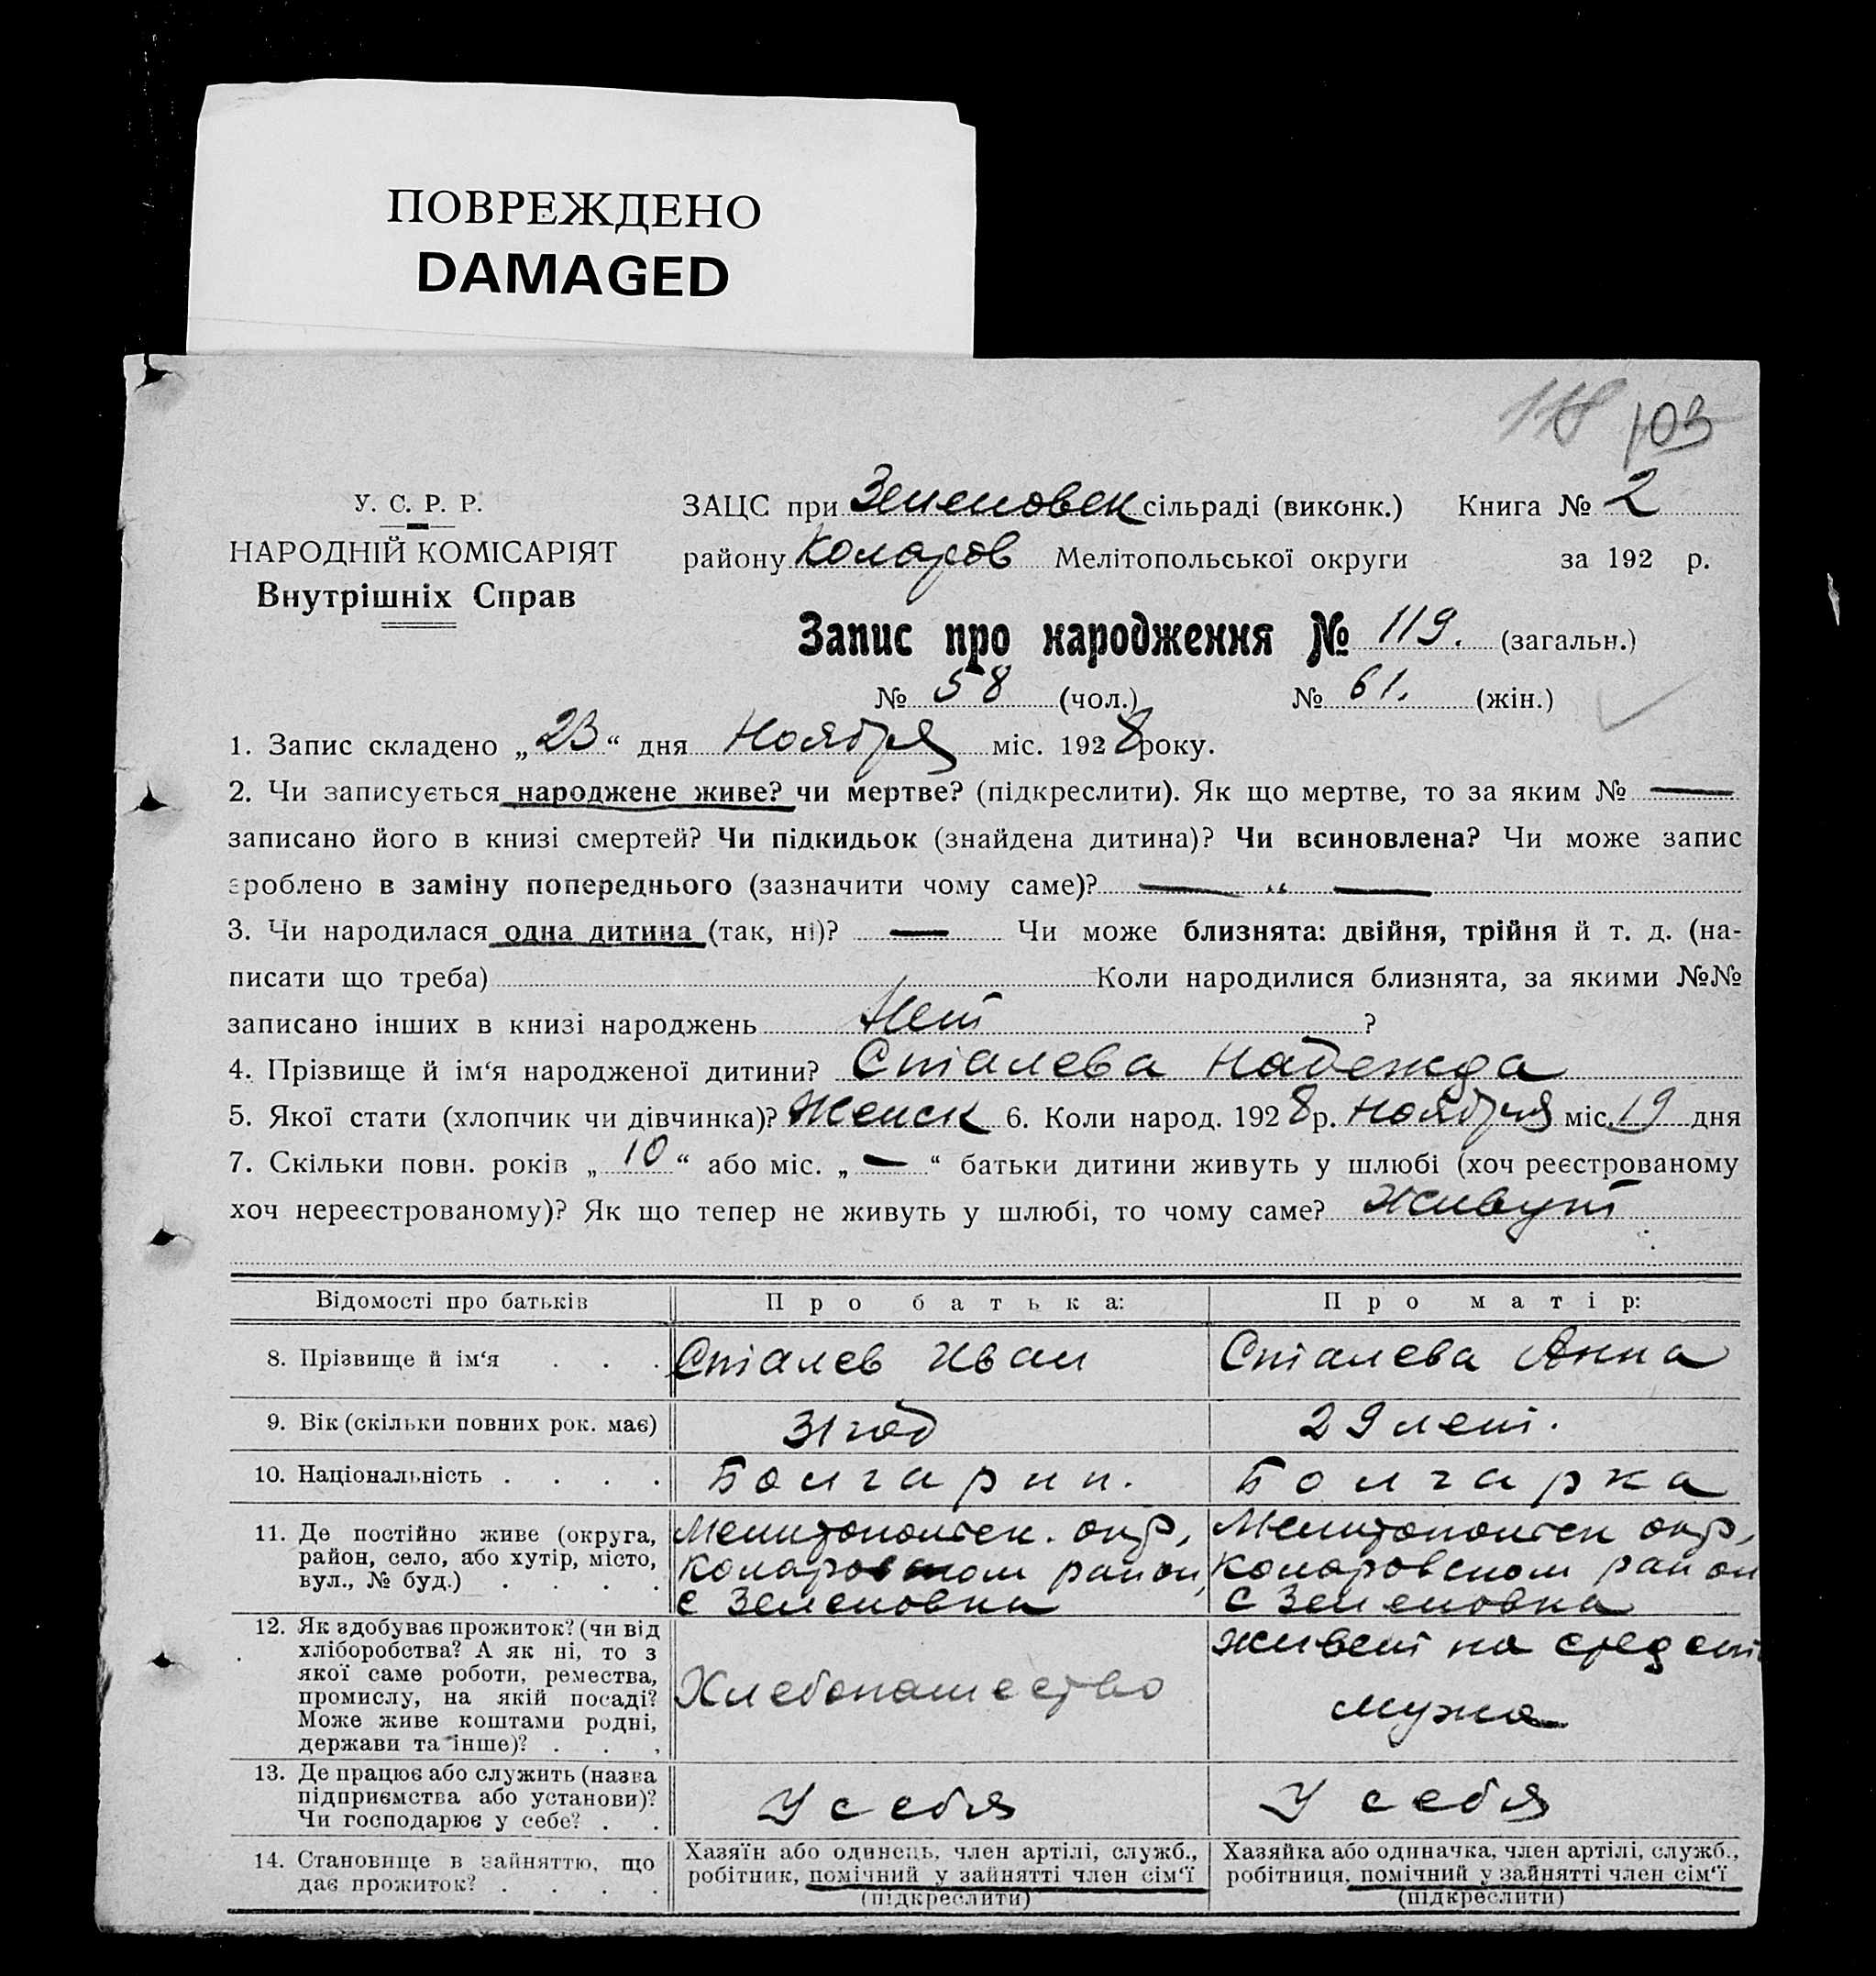 ПОВРЕЖДЕНО
DAMAGED
118 103
У. С. Р. Р.
НАРОДНІЙ КОМІСАРІЯТ
Внутрішніх Справ
ЗАЦС при Зеленовск сільраді (виконк.) Книга № 2
району Коларов Мелітопольської округи за 192 р.
Запис про народження № 119. (загальн.)
№ 58 (чол.) № 61. (жін.)
1. Запис складено „23“ дня Ноября міс. 1928 року.
2. Чи записується народжене живе? чи мертве? (підкреслити). Як що мертве, то за яким № —
записано його в книзі смертей? Чи підкидьок (знайдена дитина)? Чи всиновлена? Чи може запис
зроблено в заміну попереднього (зазначити чому саме)? — “ —
3. Чи народилася одна дитина (так, ні)? — Чи може близнята: двійня, трійня й т. д. (на-
писати що треба) Коли народилися близнята, за якими №№
записано інших в книзі народжень Нет ?
4. Прізвище й ім‘я народженої дитини? Сталева Надежда
5. Якої стати (хлопчик чи дівчинка)? Женск 6. Коли народ. 1928 р. Ноября міс. 19 дня
7. Скільки повн. років „10“ або міс. „—“ батьки дитини живуть у шлюбі (хоч реєстрованому
хоч нереєстрованому)? Як що тепер не живуть у шлюбі, то чому саме? Живут
Відомості про батьків Про батька: Про матір:
8. Прізвище й ім‘я . . . Сталев Иван Сталева Анна
9. Вік (скільки повних рок. має) 31 год 29 лет.
10. Національність . . . . Болгарин. Болгарка
11. Де постійно живе (округа, Мелитопольск. окр, Мелитопольск окр,
район, село, або хутір, місто, Коларовском район, Коларовском район
вул., № буд.) . . . . с Зеленовка с Зеленовка
12. Як здобуває прожиток? (чи від
хліборобства? А як ні, то з живет на средст
якої саме роботи, ремества,
промислу, на якій посаді? Хлебопашество
Може живе коштами родні, мужа
держави та інше)? . . .
13. Де працює або служить (назва
підприємства або установи)? У себя У себя
Чи господарює у себе? . .
14. Становище в зайняттю, що Хазяїн або одинець, член артілі, служб., Хазяйка або одиначка, член артілі, служб.,
дає прожиток? . . . . робітник, помічний у зайнятті член сім‘ї робітниця, помічний у зайнятті член сім‘ї
(підкреслити) (підкреслити)